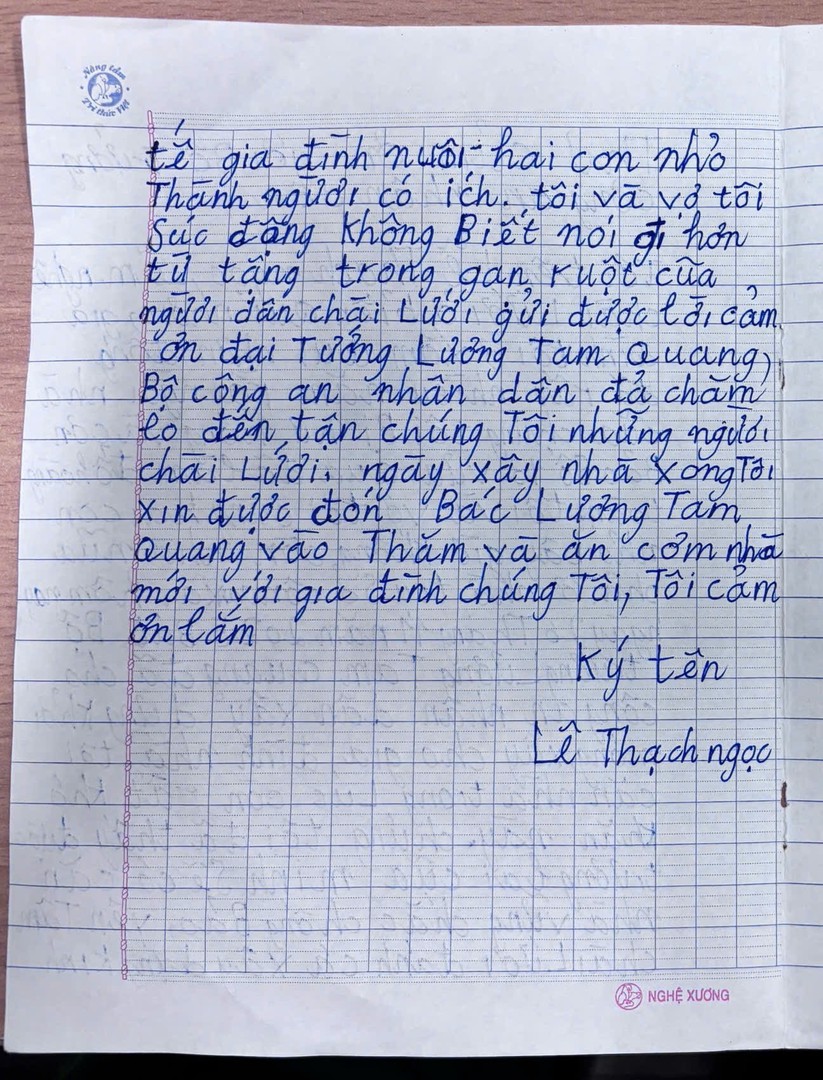 Nâng tầm
Tri thức Việt
tế gia đình nuôi hai con nhỏ
Thành người có ích. tôi và vợ tôi
Súc động Không Biết nói gì hơn
từ tặng trong gan ruột của
người dân chài Lưới gửi được lời cảm
ơn đại Tướng Lương Tam Quang,
Bộ công an nhân dân đả chăm
lo đến tận chúng Tôi những người
chài Lưới. ngày xây nhà xong Tôi
xin được đón Bác Lương Tam
Quang vào Thăm và ăn cơm nhà
mới với gia đình chúng Tôi, Tôi cảm
ơn lắm
Ký tên
Lê Thạch ngọc
NGHỆ XƯƠNG